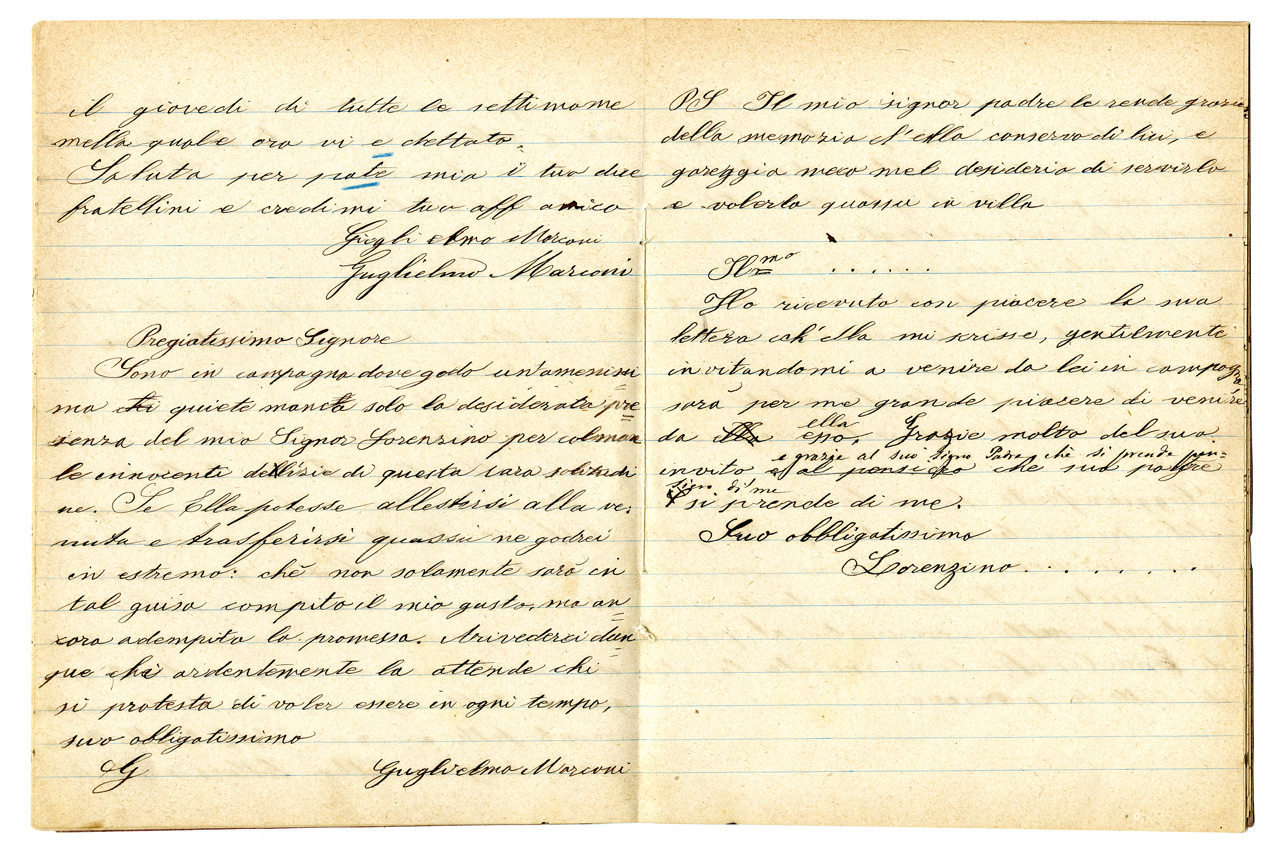 il giovedi di tutte le settimane
nella quale ora vi e dettato.
Saluta per pate mia i tuo due
fratellini e credimi tuo aff amico
Giegli elmo Marconi
Guglielmo Marconi
Pregiatissimo Signore
Sono in campagna dove godo un'amenissi
ma quiete manca solo la desiderata pre
senza del mio Signor Lorenzino per colmare
le innocenti delizie di questa cara solitudi
ne. Se Ella potesse allestirsi alla ve:
nuta e trasferirsi quassu ne godrei
in estremo: chè non solamente sarà in
tal guisa compito il mio gusto, ma an
cora adempita la promessa. Arivederci dun
que chè ardentemente la attende chi
si protesta di voler essere in ogni tempo,
suo obligatissimo
G Guglielmo Marconi
PS Il mio signor padre le rende grazie
della memoria ch'ella conserva di lui, e
gareggia meco nel desiderio di servirla
e volerla quassu in villa
Ill mo ......
Ho ricevuto con piacere la sua
lettera ch'ella mi scrisse, gentilmente
invitandomi a venire da lei in campagna
sarà per me grande piacere di venire
ella
da ella esso. Grazie molto del suo
e grazie al suo Signo Padre chè si prende pen=
invito e al pensiero che suo padre
siero di me
si prende di me.
Suo obbligatissimo
Lorenzino . . . . . . . .